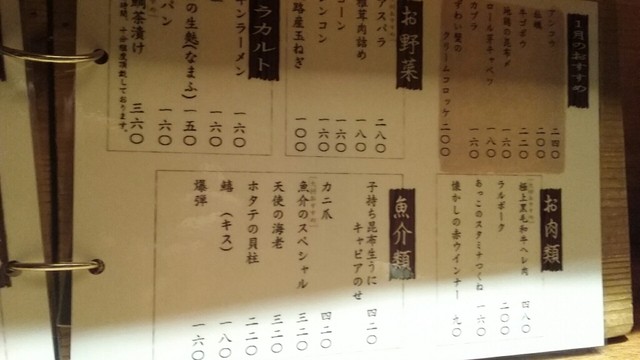 1月のおすすめ
アンコウ 二四〇
仏蝋 二〇〇
牛ゴボウ 二二〇
地鶏の昆布〆 一六〇
ロール芽キャベツ 一八〇
カブラ 一六〇
ずわい蟹のクリームコロッケ 二〇〇
お野菜
アスパラ 二八〇
椎茸肉詰め 一八〇
コーン 一六〇
レンコン 一六〇
路産玉ねぎ 一〇〇
ラカルト
キンラーメン 一六〇
の生麩(なまふ) 一五〇
パン 一六〇
鯛茶漬け 三六〇
時間、十分程度頂戴しております。
お肉類
極上黒毛和牛ヘレ肉 四八〇
ラルポーク 二〇〇
あっこのスタミナつくね 一六〇
懐かしの赤ウインナー 九〇
魚介類
子持ち昆布生うに
キャビアのせ 四二〇
カニ爪 四二〇
魚介のスペシャル 三二〇
天使の海老 三二〇
ホタテの貝柱 二二〇
鱚(キス) 一八〇
爆弾 一六〇